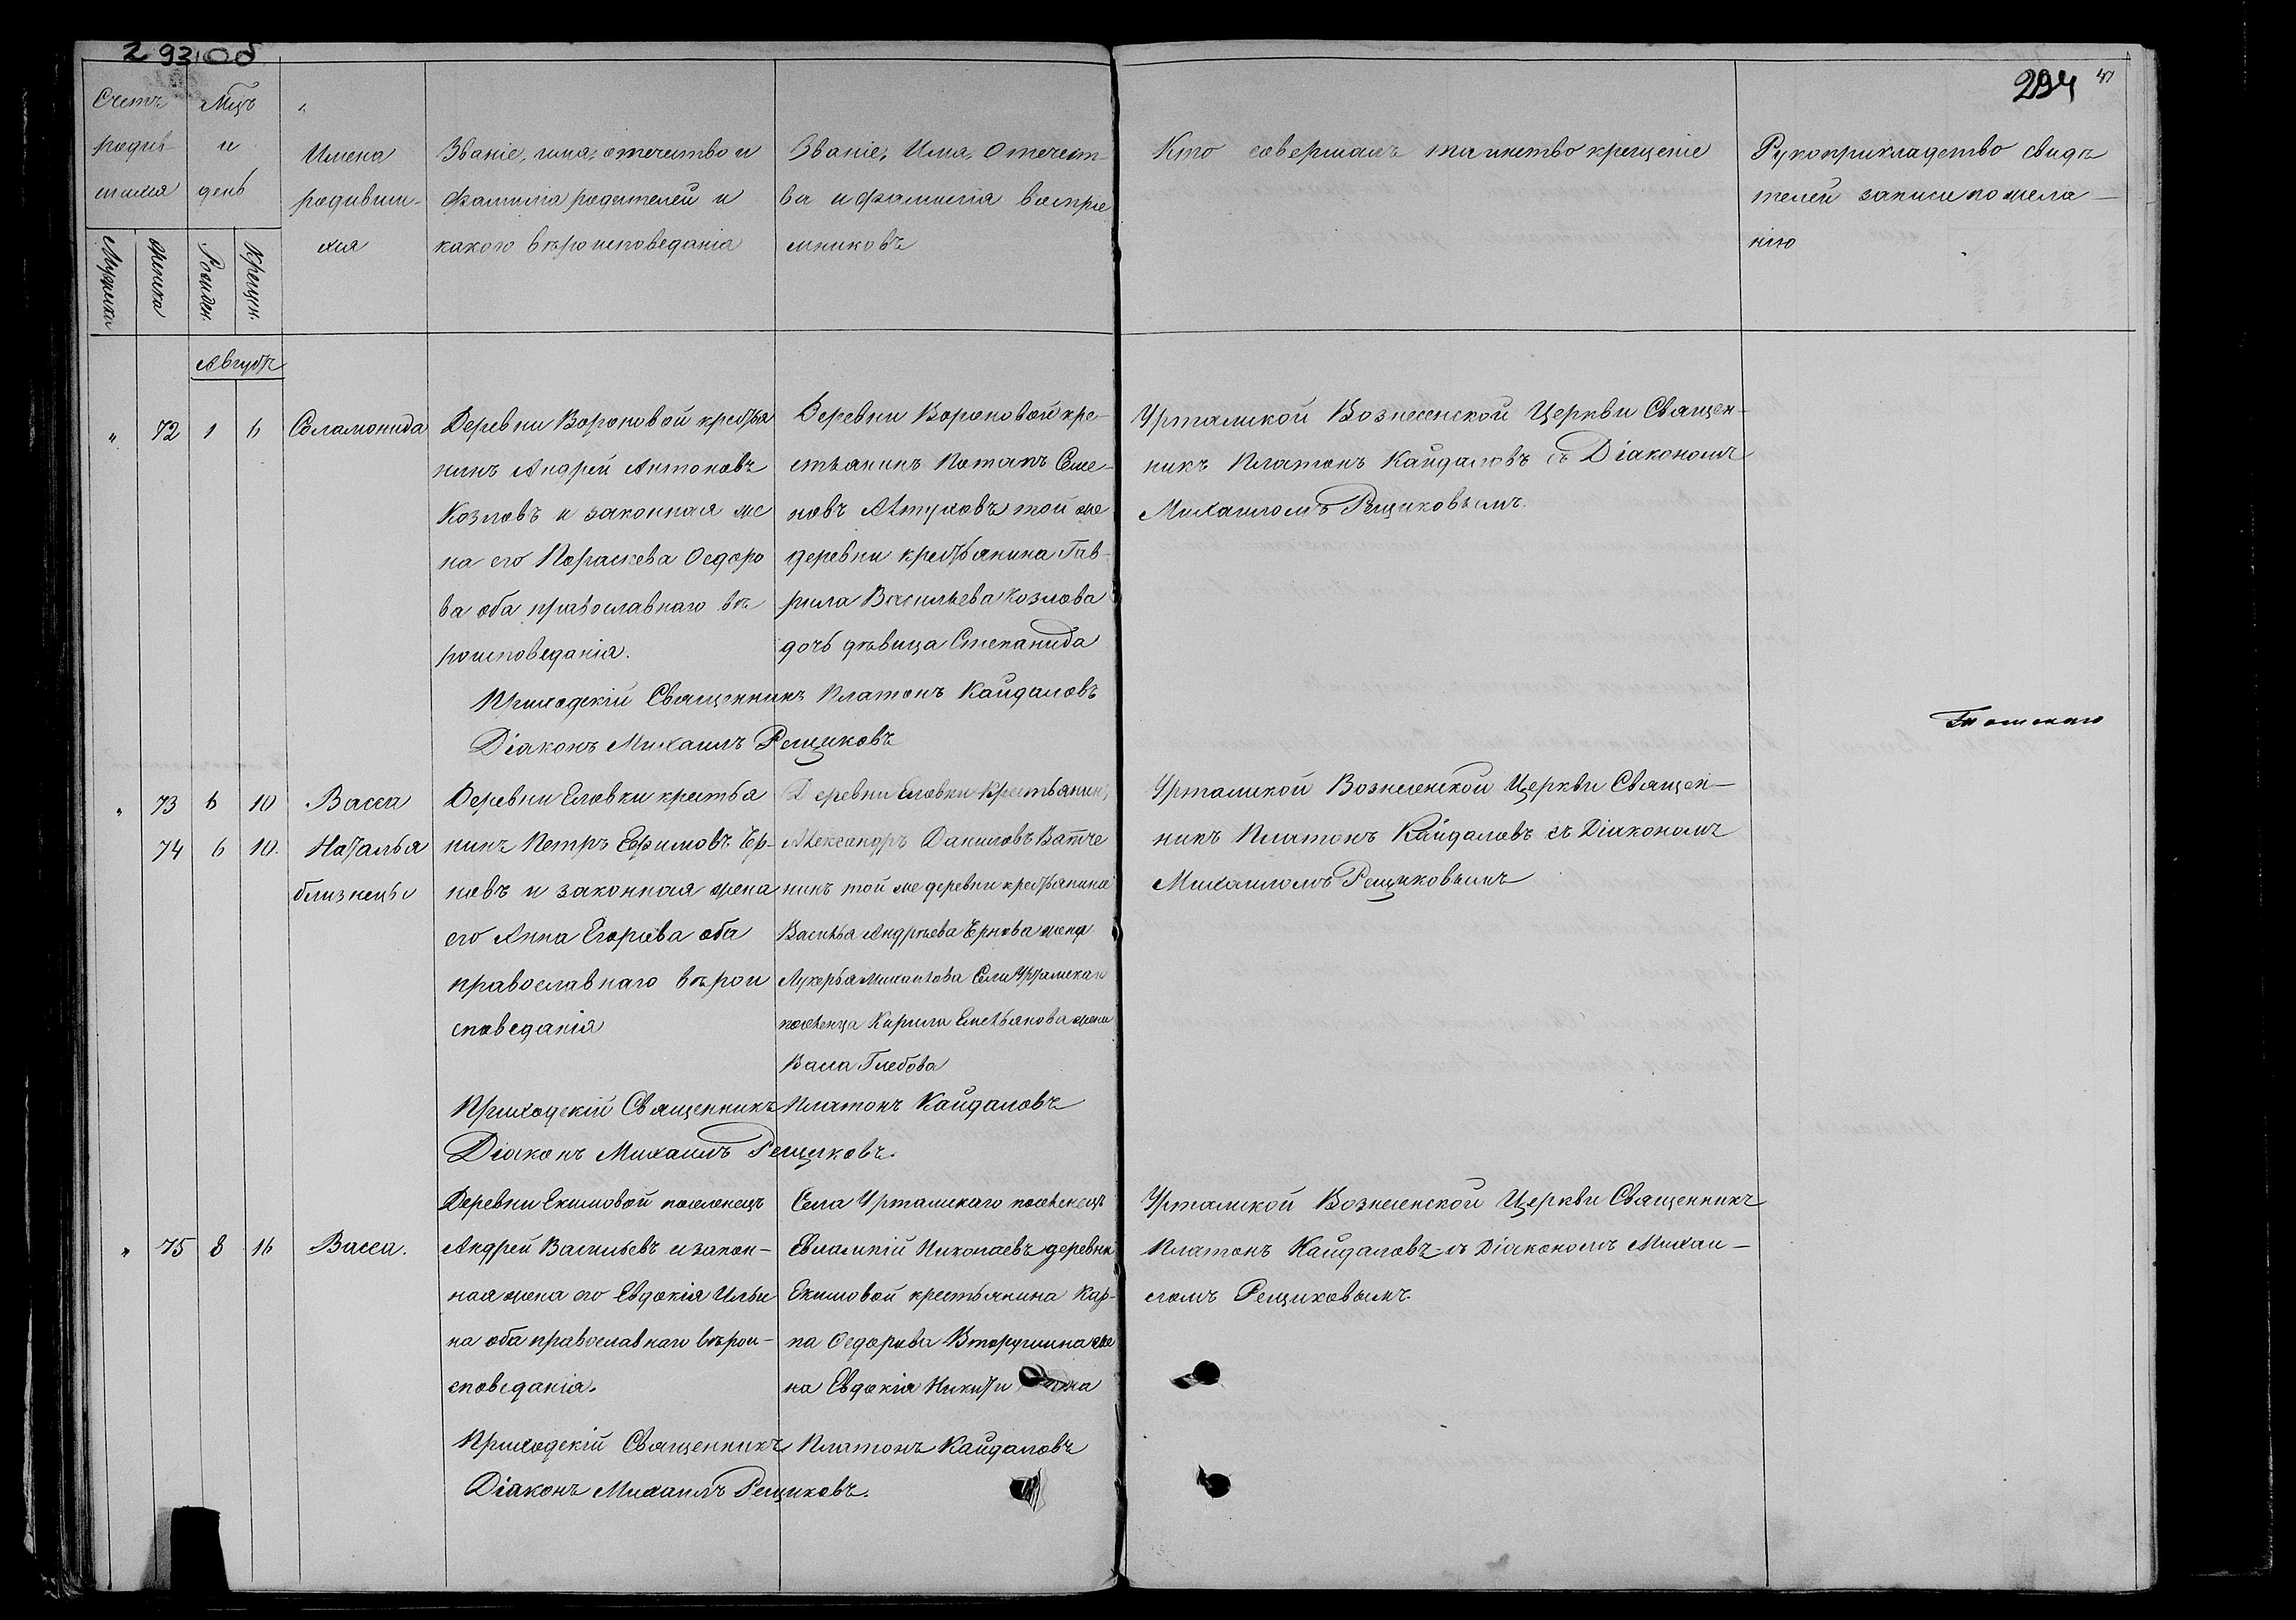 293 об
294
Счетъ
родив-
шихся
Мцъ
и
день
Имена
родивши-
хся
Званіе, имя, отечество и
фамилія родителей и
какого вѣроисповеданія
Званіе, Имя, Отечест-
ва и фамилія воспріе
мниковъ
Кто совершалъ таинство крещеніе
Рукоприкладство свидѣ
телей записи по жела-
нію
Мужска
Женска
Рожден.
Крещен.
Августъ
" 72 1 6 Соламонида
Деревни Вороновой крестья
нинъ Андрей Антоновъ
Козловъ и законная же
на его Пораскева Ѳедоро
ва оба православнаго вѣ
роисповеданія.
Деревни Вороновой кре-
стьянинъ Потапъ Семе-
новъ той же
деревни крестьянина Гав-
рила Васильева Козлова
дочь дѣвица Степанида
Уртамской Вознесенской Церкви Священ-
никъ Платонъ Кайдаловъ съ Діакономъ
Михаиломъ Рещиковымъ.
Приходскій Священникъ Платонъ Кайдаловъ
Діаконъ Михаилъ Рещиковъ
Томскаго
" 73 6 10 Васса
74 6 10. Наталья
близнецы
Деревни Еловки крестья
нинъ Петръ Ефимовъ Чер-
новъ и законная жена
его Анна Егорова оба
православнаго вѣрои
споведанія
Деревни Еловки Крестьянинъ
Александръ Даниловъ Ватче
нинъ той же деревни крестьянина
Василья Андрѣева Чернова жена
Лукерья Михайлова Села Уртамскаго
поселенца Кирила Емельянова жена
Васса Глебова
Уртамской Вознесенской Церкви Священ-
никъ Платонъ Кайдаловъ съ Діакономъ
Михаиломъ Рещиковымъ
Приходскій Священникъ Платонъ Кайдаловъ
Діаконъ Михаилъ Рещиковъ.
" 75 8 16 Васса.
Деревни Екимовой поселенецъ
Андрей Васильевъ и закон-
ная жена его Евдокія Ильи
на оба православнаго вѣрои-
споведанія.
Села Уртамскаго поселенецъ
Евлампій Николаевъ деревни
Екимовой крестьянина Кар-
па Ѳедорова Вторушина же
на Евдокія Никити
Уртамской Вознесенской Церкви Священникъ
Платонъ Кайдаловъ съ Діакономъ Михаи-
ломъ Рещиковымъ.
Приходскій Священникъ Платонъ Кайдаловъ
Діаконъ Михаилъ Рещиковъ.